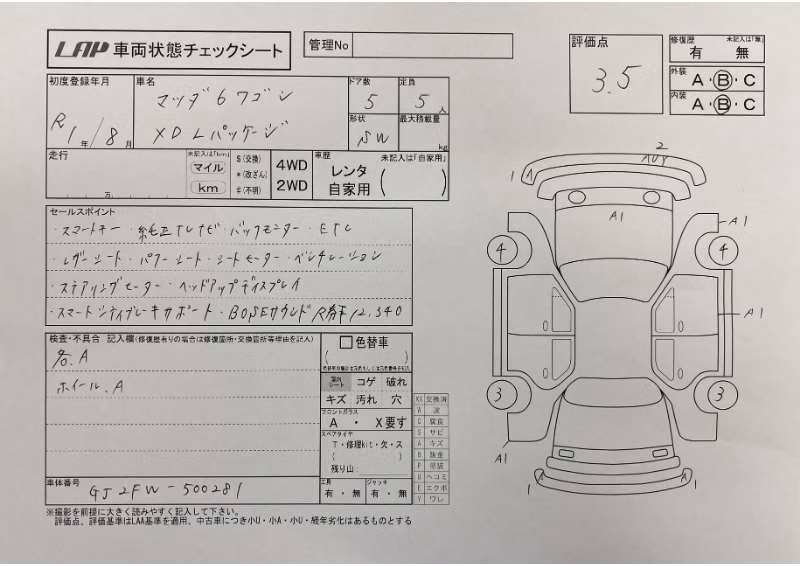 LAP 車両状態チェックシート
管理No
評価点
3.5
修復歴 未記入は「無」
有 無
外装 A・B・C
内装 A・B・C
初度登録年月
R1年/8月
車名
マツダ6ワゴン
XD Lパッケージ
ドア数
5
定員
5人
形状
SW
最大積載量
kg
走行
万
未記入は「km」
マイル
km
S(交換)
*(改ざん)
#(不明)
4WD
2WD
車歴 未記入は「自家用」
レンタ
自家用
セールスポイント
・スマートキー・純正TVナビ・バックモニター・ETC
・レザーシート・パワーシート・シートヒーター・ベンチレーション
・ステアリングヒーター・ヘッドアップディスプレイ
・スマートシティブレーキサポート・BOSEサウンド R券¥12,340
検査・不具合 記入欄(修復歴有りの場合は修復箇所・交換箇所等理由を記入)
各.A
ホイール.A
色替車
室内シート
コゲ 破れ
キズ 汚れ 穴
フロントガラス
A ・ X要す
スペアタイヤ
T・修理kit・欠・ス
残り山:
工具
有・無
ジャッキ
有・無
XX 交換済
W 波
C 腐食
S サビ
A キズ
B 板金
P 塗装
U ヘコミ
E エクボ
Y ワレ
車体番号
GJ2FW-500281
※撮影を前提に大きく読みやすく記入して下さい。
評価点、評価基準はLAA基準を適用、中古車につき小U・小A・小U・経年劣化はあるものとする
2
1
A
A1
A1
4
4
A1
3
3
A1
1
A
A
1